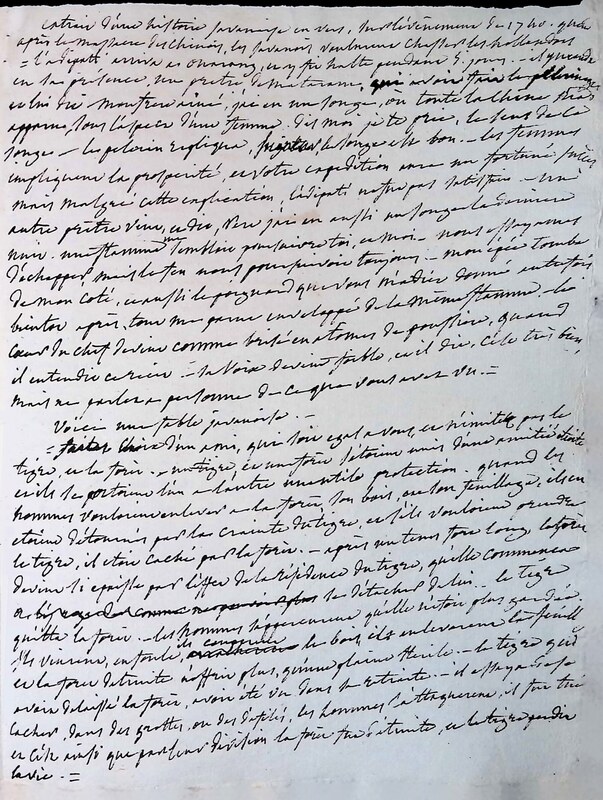 extrait d'une histoire javanaise en vers, sur l'évènement de 1740. quand
après le massacre des chinois, les javanois voulurent chasser les hollandois
= l'adipati arriva a et y fit halte pendant 5. jours. - il
en sa présence, un pretre de Mataram, qui avoit fait le pelerinage
et lui dit mon frere ainé, j'ai eu un songe, où toute la chine étoit
sous l'aspect d'une femme. dis moi je te prie, le sens de ce
songe - le pelerin repliqua, le songe est bon. - les femmes
impliquent la prosperité, et votre expedition aura un fortuné succès
mais malgré cette explication, l'adipati n'etoit pas satisfait - un
autre pretre vint, et dit, Pere j'ai eu aussi un songe la derniere
nuit. une flamme sembloit poursuivre toi, et moi - nous essayames
d'échapper, mais le feu nous poursuivoit toujours - mon épée tomba
de mon coté, et aussi le poignard que vous m'aviez donné autrefois
bientot après, tout me parut enveloppé de la même flamme. le
coeur du chef devint comme brisé en atomes de poussiere, quand
il entendit ce recit - sa voix devint foible, et il dit, cela est très bien,
mais ne parlez a personne de ce que vous avez vu. =
Voici une fable javanoise. -
= faites choix d'un ami, qui soit egal a vous, et n'imitez pas le
tigre, et la forêt. - un tigre, et une forêt s'etoient unis d'une amitié étroite
et ils se portoient l'un a l'autre une utile protection. quand les
hommes vouloient enlever a la forêt, son bois, ou son feuillage, ils en
etoient détournés par la crainte du tigre, et s'ils vouloient prendre
le tigre, il etoit caché par la forêt. - après un tems fort long, la forêt
devint si epaisse par l'effet de la résidence du tigre, qu'elle commença
a se détacher de lui. - le tigre
quitta la forêt - les hommes apperçurent qu'elle n'etoit plus gardée.
ils vinrent, en foule, ils couperent le bois, ils enleverent les feuilles
et la forêt detruite n'offrit plus, qu'une plaine sterile. - le tigre qui
avoit delaissé la forêt, avoit été vu dans sa retraite. - il essaya de se
cacher, dans des grottes, ou des defilés, les hommes l'attaquerent, il fut tué
et c'est ainsi que par leur division la forêt fut detruite, et le tigre perdit
la vie. =